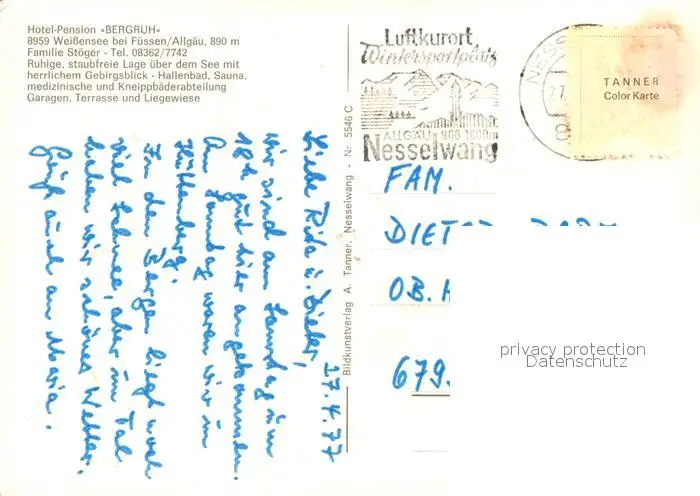 Hotel-Pension »BERGRUH«
8959 Weißensee bei Füssen/Allgäu, 890 m
Familie Stöger - Tel. 08362/7742
Ruhige, staubfreie Lage über dem See mit
herrlichem Gebirgsblick - Hallenbad, Sauna,
medizinische und Kneippbäderabteilung
Garagen, Terrasse und Liegewiese
17.4.77
Liebe Rita u. Dieter,
wir sind am Samstag um
18h gut hier angekommen.
Am Sonntag waren wir in
Hüttenberg.
In den Bergen liegt noch
viel Schnee, aber im Tal
haben wir schönes Wetter.
Gruß auch an Maria.
Bildkunstverlag A. Tanner, Nesselwang - Nr. 5546 C
Luftkurort
Wintersportplatz
ALLGÄU 900-1600m
Nesselwang
NESS
27.
TANNER
Color Karte
FAM.
DIET
OB.
679.
privacy protection
Datenschutz